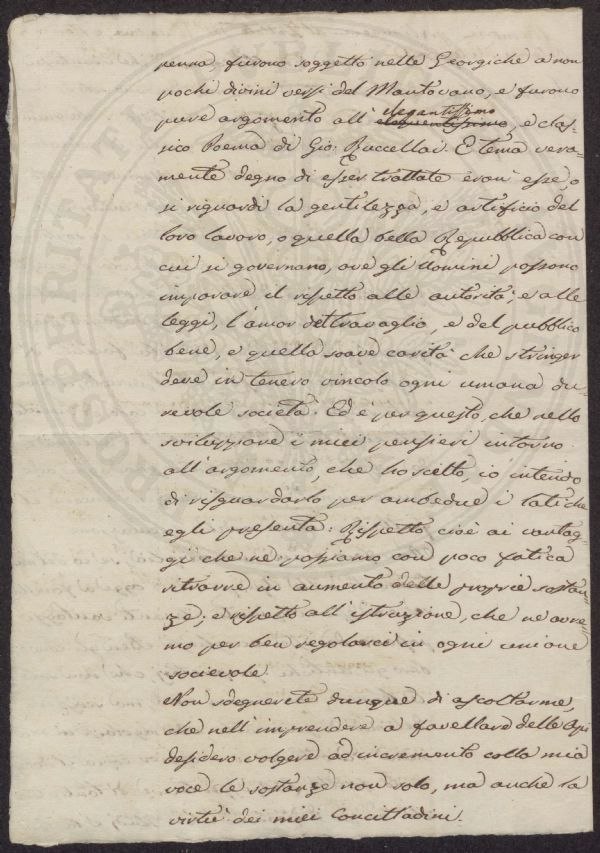 penna, furono soggetto nelle Georgiche a non
pochi divini versi del Mantovano, e furono
pure argomento all' elegantissimo eloquentissimo, e clas-
sico Poema di Gio: Ruccellai. E tema vera-
mente degno di esser trattate erani esse, o
si riguardi la gentilezza, e artificio del
loro lavoro, o quella bella Repubblica con
cui si governano, ove gli Uomini possono
imparare il rispetto alle autorità, e alle
leggi, l'amor del travaglio, e del pubblico
bene, e quella soave carità che stringer
deve in tenero vincolo ogni umana du-
revole società. Ed è per questo, che nello
sviluppare i miei pensieri intorno
all'argomento, che ho scelto, io intendo
di risguardarlo per ambedue i lati che
egli presenta: Rispetto cioè ai vantag-
gi che ne possiamo con poco fatica
ritrarre in aumento delle proprie sostan-
ze; e rispetto all'istruzione, che ne avre-
mo per ben regolarci in ogni unione
socievole.
Non sdegnerete dunque di ascoltarme,
che nell'imprendere a favellare delle Api
desidero volgere ad incremento colla mia
voce le sostanze non solo, ma anche la
virtù dei miei Concittadini.